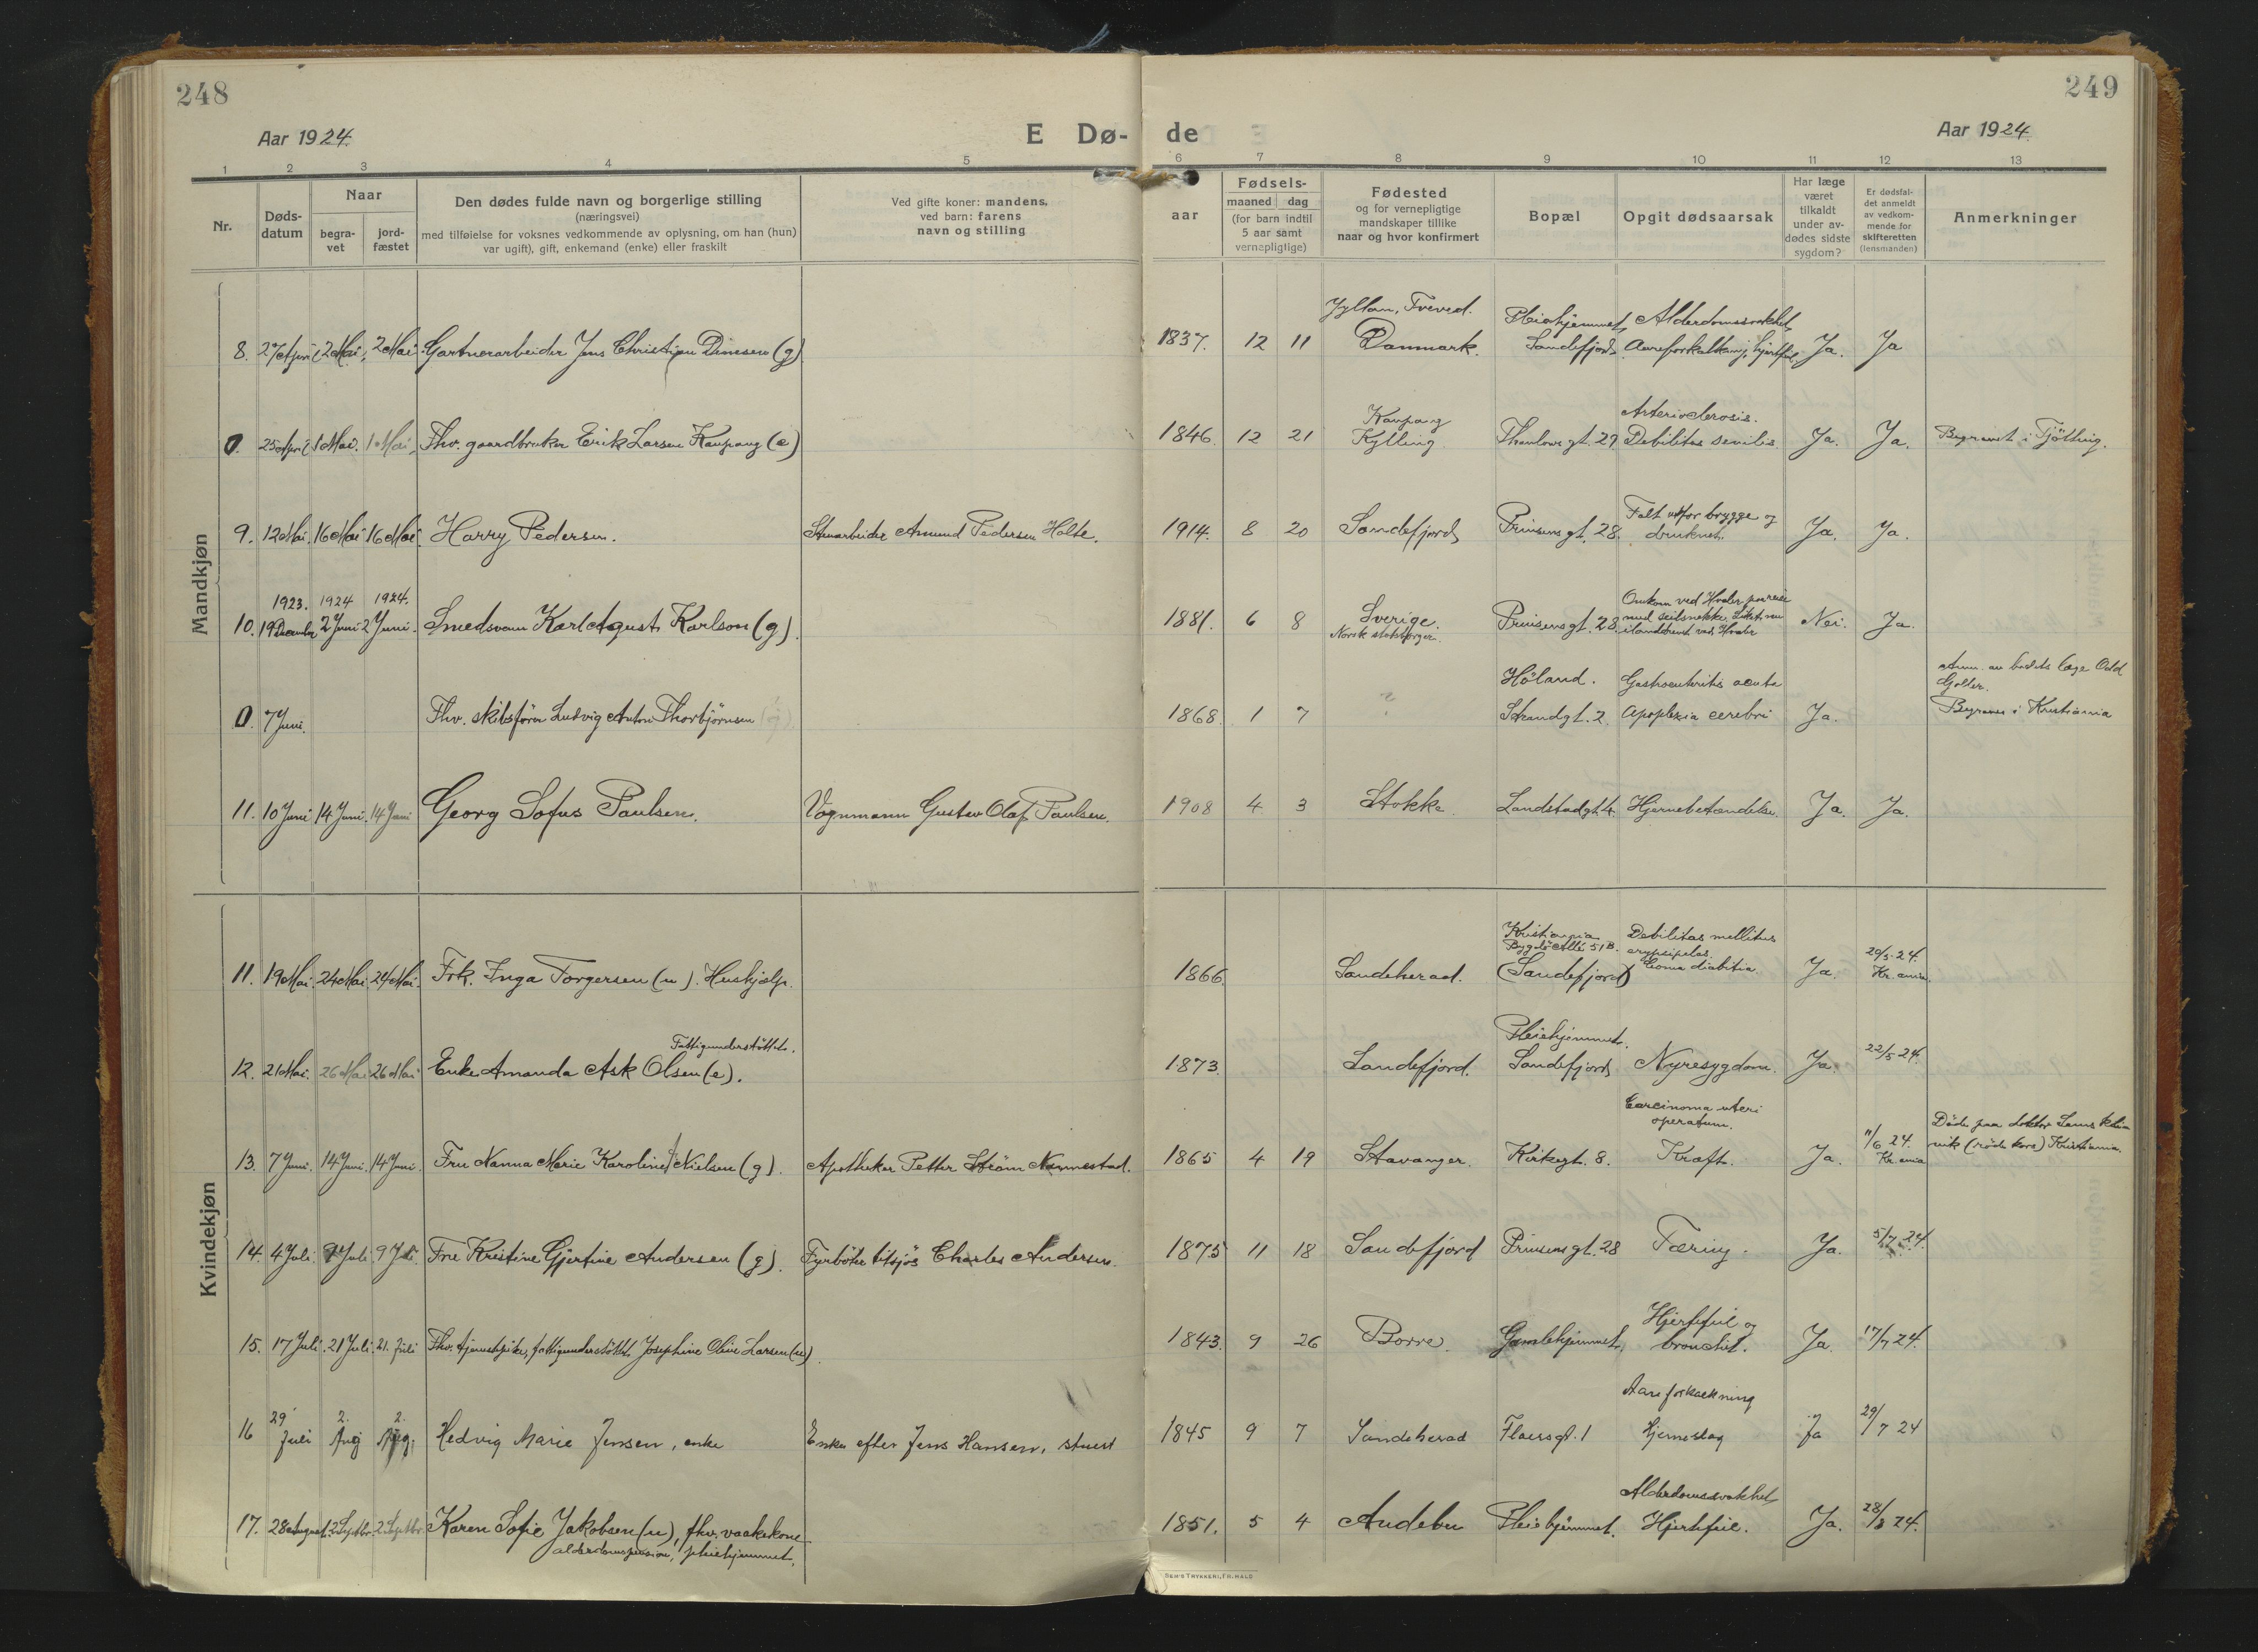 248
249
Aar 1924.
E Dø-
de
Aar 1924.
1 2 3 4 5 6 7 8 9 10 11 12 13
Nr.
Døds-
datum
Naar
begra-
vet
jord-
fæstet
Den dødes fulde navn og borgerlige stilling
(næringsvei)
med tilføielse for voksnes vedkommende av oplysning, om han (hun)
var ugift), gift, enkemand (enke) eller fraskilt
Ved gifte koner: mandens,
ved barn: farens
navn og stilling
aar
Fødsels-
maaned dag
(for barn indtil
5 aar samt
vernepligtige)
Fødested
og for vernepligtige
mandskaper tillike
naar og hvor konfirmert
Bopæl
Opgit dødsaarsak
Har læge
været
tilkaldt
under av-
dødes sidste
sygdom?
Er dødsfal-
det anmeldt
av vedkom-
mende for
skifteretten
(lensmanden)
Anmerkninger
Mandkjøn
Jyllan,
Pleiehjemmet, Alderdomssvakhet,
8. 27 April 2 Mai, 2 Mai. Gartnerarbeider Jens Christian Dinesen (g) 1837. 12 11 Danmark. Sandefjord. Aareforkalkning, hjertfeil, Ja. Ja
Kaupang Arteriosclerosis.
0. 25 April 1 Mai. 1 Mai, Fhv. gaardbruker Erik Larsen Kaupang (e) 1846. 12 21 Kylling Thaulows gt. 29 Debilitas senilis. Ja. Ja. Begravet i Tjölling.
Falt utfor brygge og
9. 12 Mai. 16 Mai 16 Mai. Harry Pedersen. Stenarbeider Amund Pedersen Holte. 1914. 8 20 Sandefjord Prinsens gt. 28. druknet. Ja. Ja.
1923. 1924 1924. Omkom ved Hvaler paa reise
10. 19 December 2 Juni 2 Juni. Smedsvenn Karl Agust Karlson (g). 1881. 6 8 Sverige. Prinsens gt. 28 med seilsnekke. Liket Nei. Ja.
Norsk statsborger. ilanddrevet ved Hvaler
Høland. Gastroenteritis acuta Anm. av badets læge Odd
Gjolder.
0. 7 Juni. Fhv. skibsfører Ludvig Anton Thorbjørnsen (g). 1868. 1 7 ? Strandgt. 2. Apoplexia cerebri Ja. Begraves i Kristiania
11. 10 Juni 14 Juni. 14 Juni Georg Sofus Paulsen. Vognmann Gustav Olaf Paulsen. 1908 4 3 Stokke Landstadgt. 4. Hjernebetændelse. Ja. Ja.
Kvindekjøn
Kristiania Debilitas mellitus
Bygdö Allé 51 B. erypsipelas. 20/5-24.
11. 19 Mai. 24 Mai 24 Mai. Frk. Inga Torgersen (u). Hushjælp. 1866. Sandeherad. (Sandefjord) Coma diabitia Ja. Kr.ania.
Fattigunderstöttet. Pleiehjemmet.
12. 21 Mai. 26 Mai 26 Mai Enke Amanda Ask Olsen (e). 1873. Sandefjord. Sandefjord Nyresygdom. Ja. 22/5 24.
Carcinoma uteri
operatum. Døde paa doktor
13. 7 Juni. 14 Juni. 14 Juni. Fru Nanna Marie Karoline Nielsen (g). Apotheker Petter Ström Nannestad. 1865 4 19 Stavanger. Kirkegt. 8. Kræft. Ja. 11/6 24. Kr.ania nik (røde kors) Kristiania.
14. 4 Juli. 9 Juli 9 Juli. Fru Kristine Gjertine Andersen (g). Fyrböter tilsjös Charles Andersen. 1875 11 18 Sandefjord Prinsens gt. 28 Tæring. Ja. 5/7 24.
Hjertefeil og
15. 17 Juli 21 Juli 21. Juli Fhv. tjenestpike, fattigunderstöttet. Josephine Oline Larsen (u). 1843. 9 26 Borre. Gamlehjemmet, bronchit. Ja. 17/7 24.
Aareforkalkning
16 29 Juli 2. Aug 2. Aug. Hedvig Marie Jensen, enke Enke efter Jens Hansen, stuert 1845 9 7 Sandeherad Floersgt. 1 Hjerneslag Ja 29/7 24
Alderdomssvakhet,
17. 28 August. 2 Septbr. 2 Septbr. Karen Sofie Jakobsen (u), fhv. vaakekone 1851. 5 4 Andebu Pleiehjemmet. Hjertefeil. Ja. 28/8 24.
alderdomspension, pleiehjemmet.
SEM'S TRYKKERI, FR.HALD